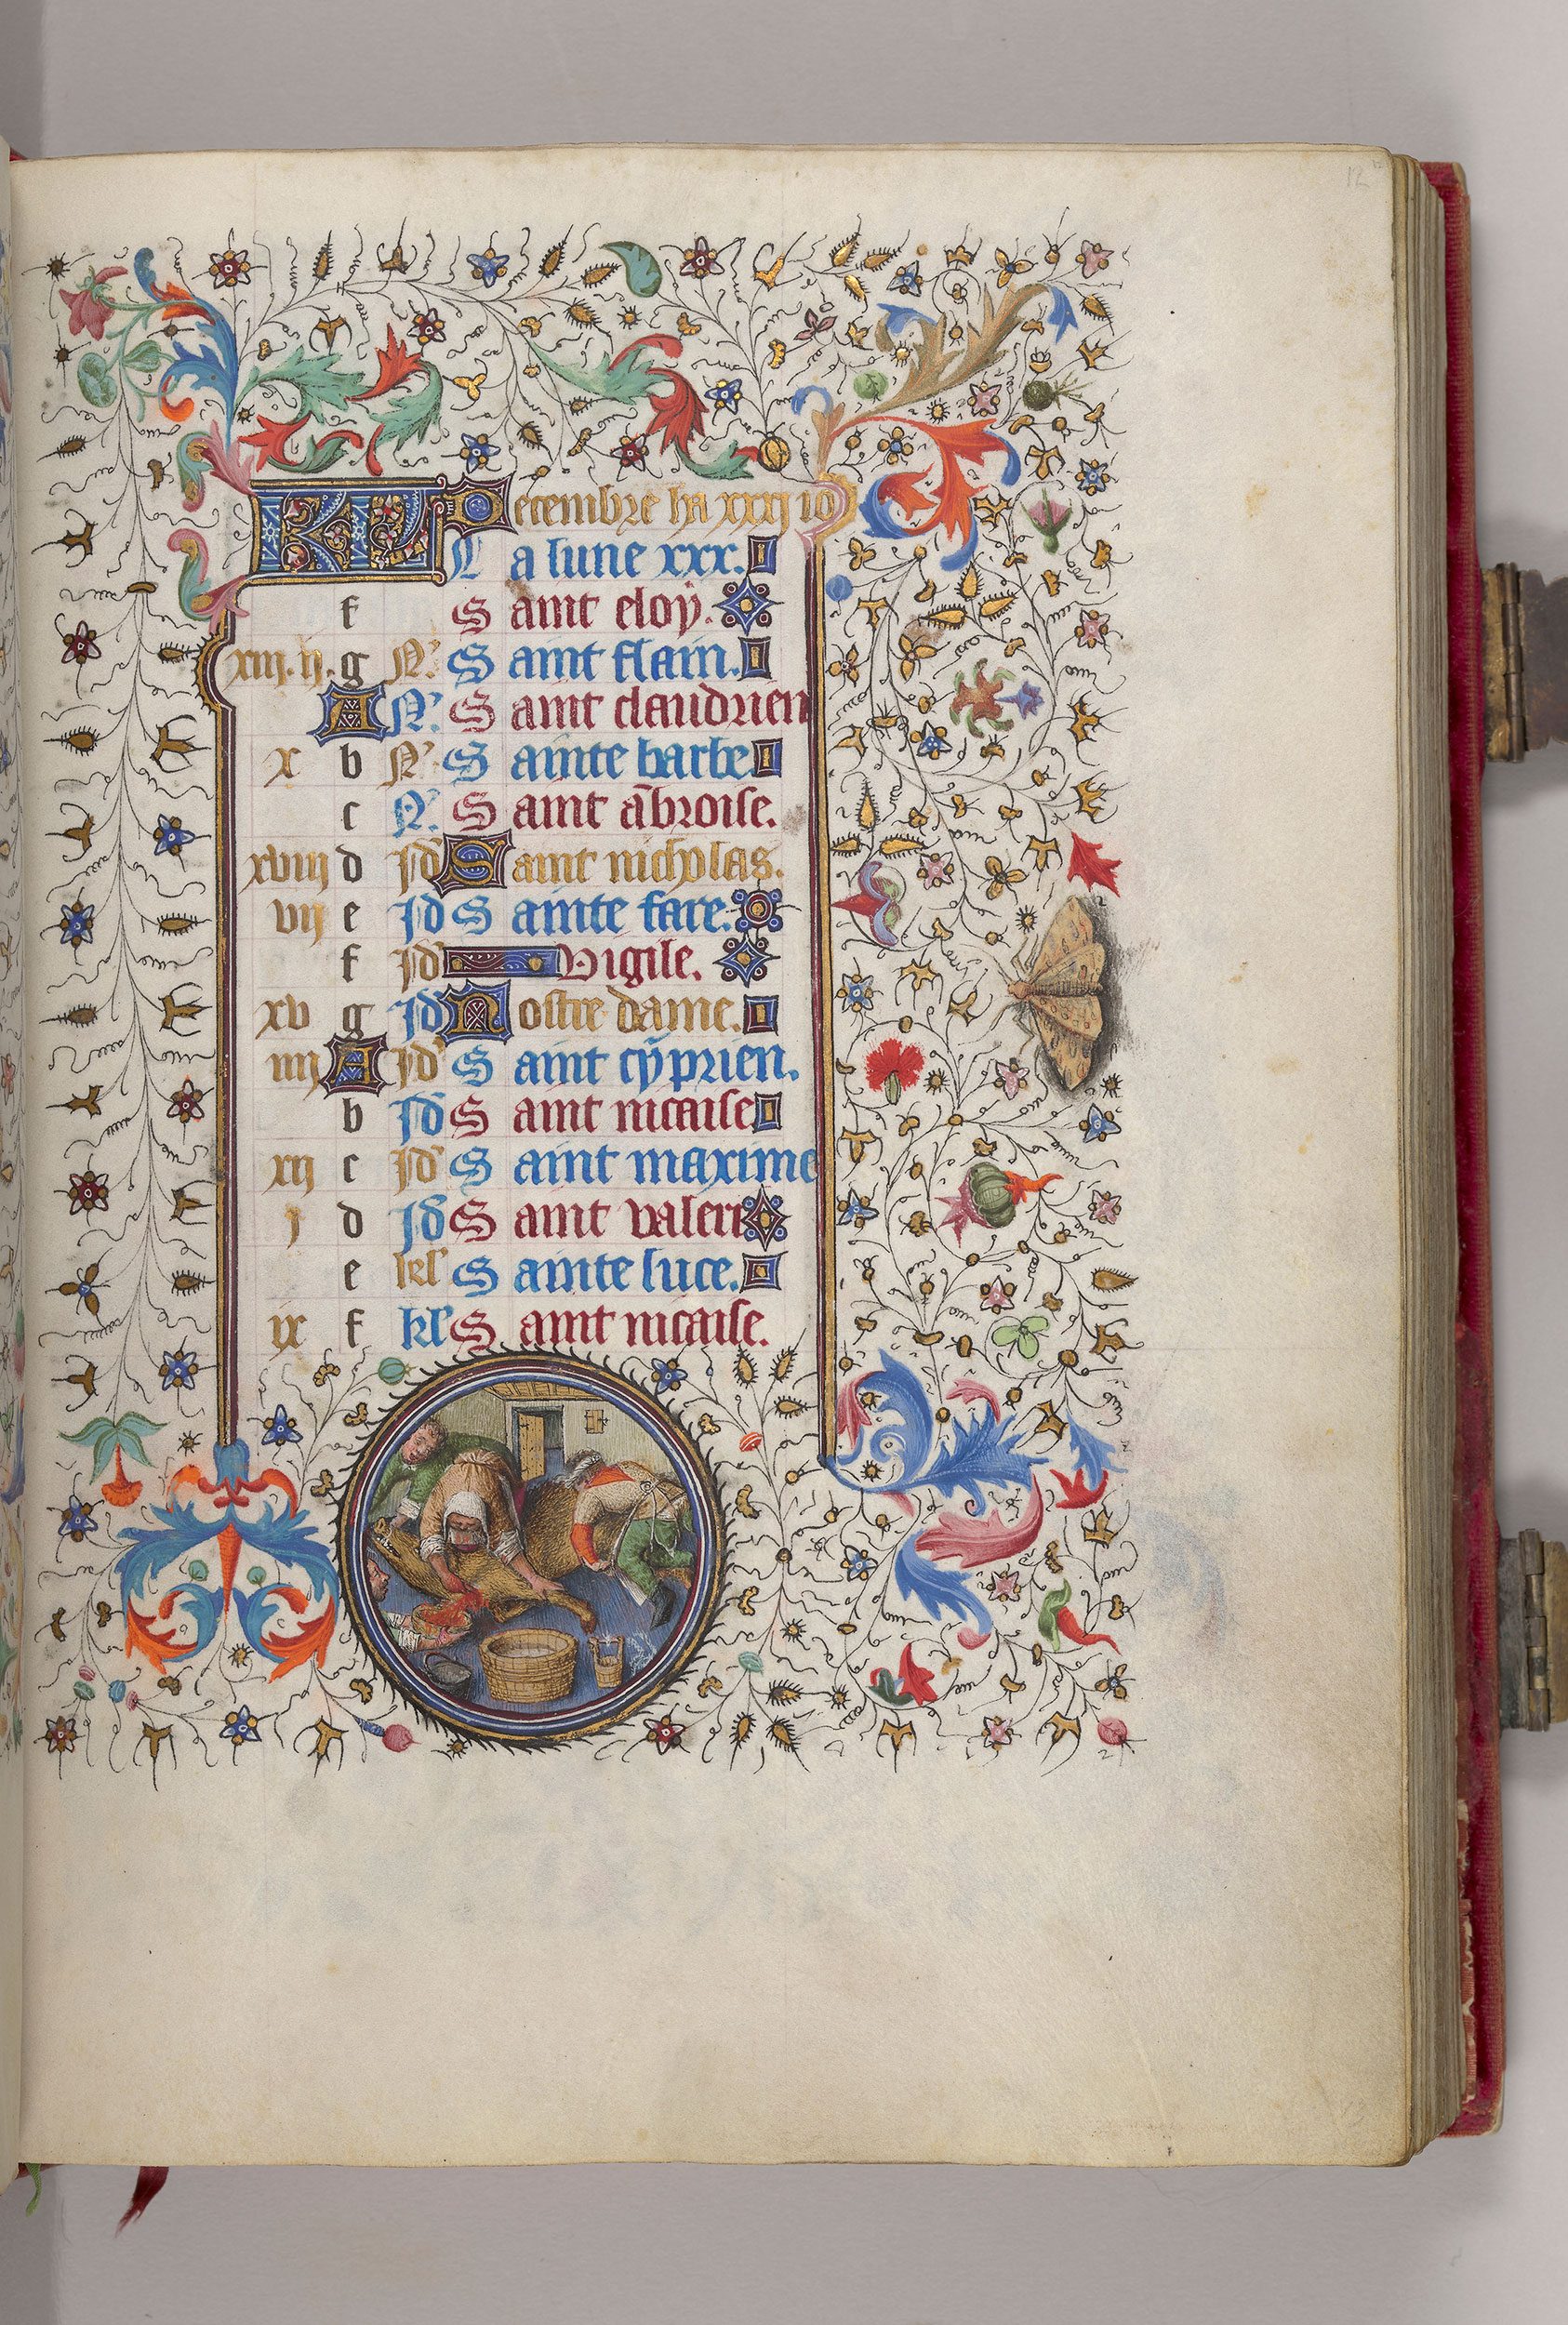 12
KL Decembre ha xxxj io
La lune xxx.
f Saint eloy.
xiij. ij. g N. Saint flain.
A N. Saint claudrien
x b N. Sainte barbe
c N. Saint ābroise.
xviij d Jd Saint nicholas.
vij e Jd Sainte fare.
f Jd Vigile.
xv g Jd Nostre dame.
iiij A Jd Saint cyprien.
b Jd Saint nicaise
xij c Jd Saint maxime
j d Jd Saint valeri
e kl Sainte luce.
ix f kl Saint nicaise.